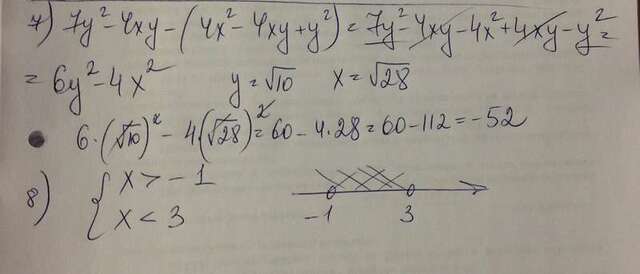 7) 7y²-4xy-(4x²-4xy+y²)=7y²-4xy-4x²+4xy-y²=
=6y²-4x² y=√10 x=√28
6·(√10)²-4·(√28)²=60-4·28=60-112=-52
8) { x>-1
x<3
-1 3